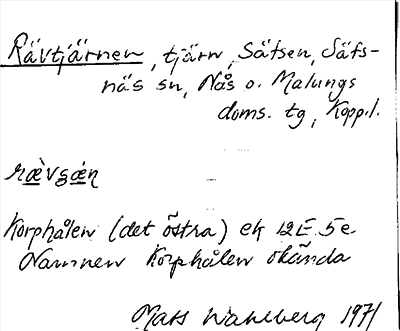 Rävtjärnen, tjärn, Säfsen, Säfs-
näs sn, Nås o. Malungs
doms. tg, Kopp.l.
ræ̀vʂæ̀n
Korphålen (det östra) ek 12E 5e
Namnen Korphålen okända
Mats Wahlberg 1971